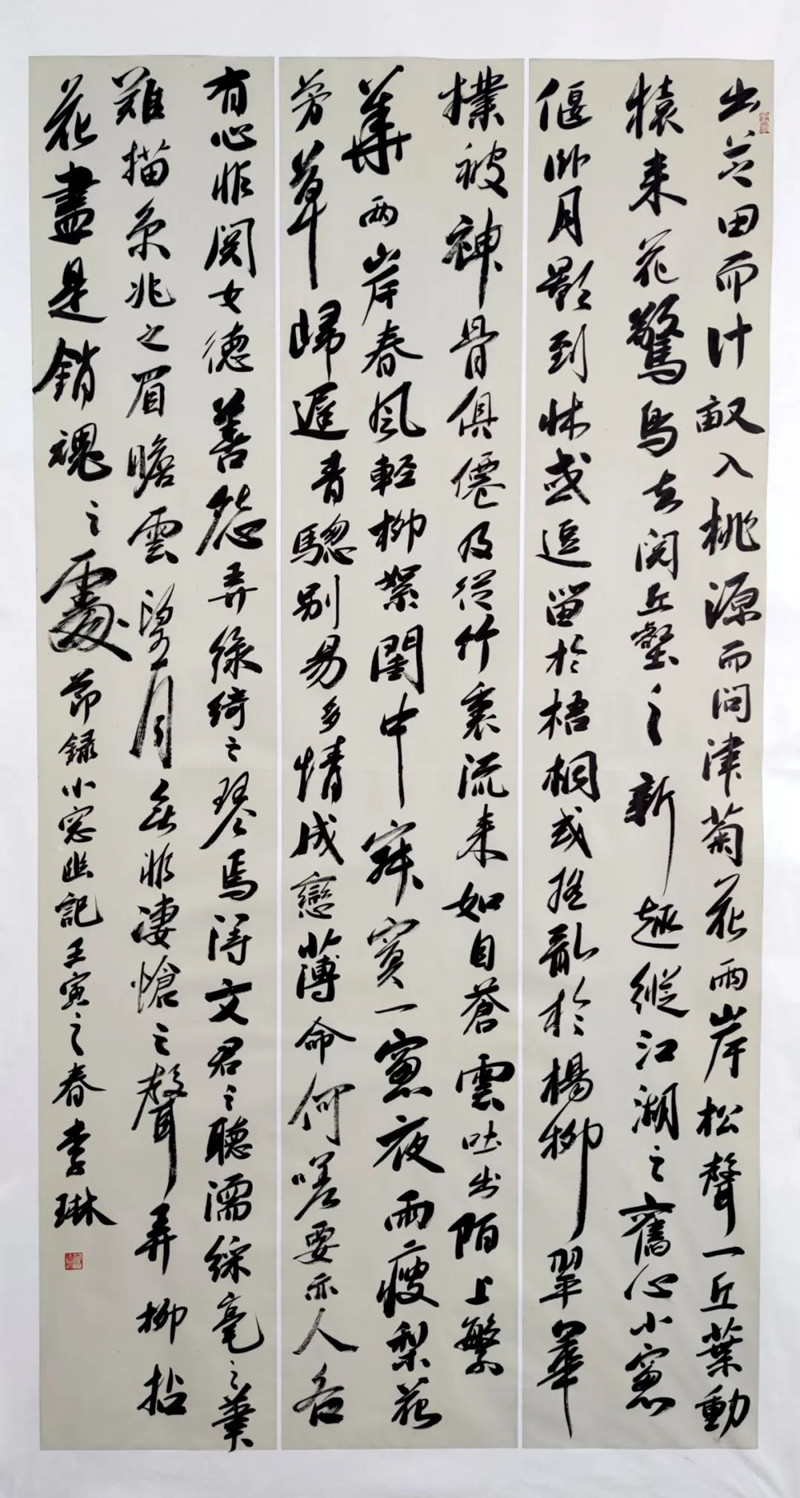 出芝田而計畝入桃源而問津菊花兩岸松聲一丘葉動
猿来花驚鳥去閱丘壑之新趣縱江湖之舊心小窻
偃卧月影到牀或逗留於梧桐或摇亂於楊柳翠華
撲被神骨俱僊及從竹裏流来如自蒼雲吐出陌上繁
華兩岸春風輕柳絮閨中寂寞一窻夜雨瘦梨花
芳草歸遲青驄别易多情成戀薄命何嗟要亦人各
有心非關女德善怨弄綠綺之琴焉得文君之聽濡綵毫之筆
難描京兆之眉瞻雲望月無非淒愴之聲弄柳拈
花盡是銷魂之處 節録小窓幽記壬寅之春李琳